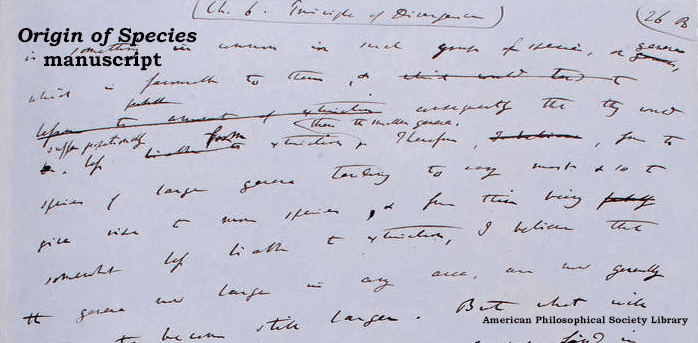 Ch. 6. Principle of Divergence
26 B
Origin of Species
manuscript
is something in common in such groups of species, or genera
which is favourable to them, & which would tend to
probably
lessen the amount of extinction consequently the they would
than the smaller genera.
suffer proportionally from
less liable to extinction Therefore, I believe, from the
species of large genera tending to vary most & so to
give rise to more species, & from their being probably
somewhat less liable to extinction, I believe that
the genera now large in any area, are now generally
to become still larger. But what will
American Philosophical Society Library